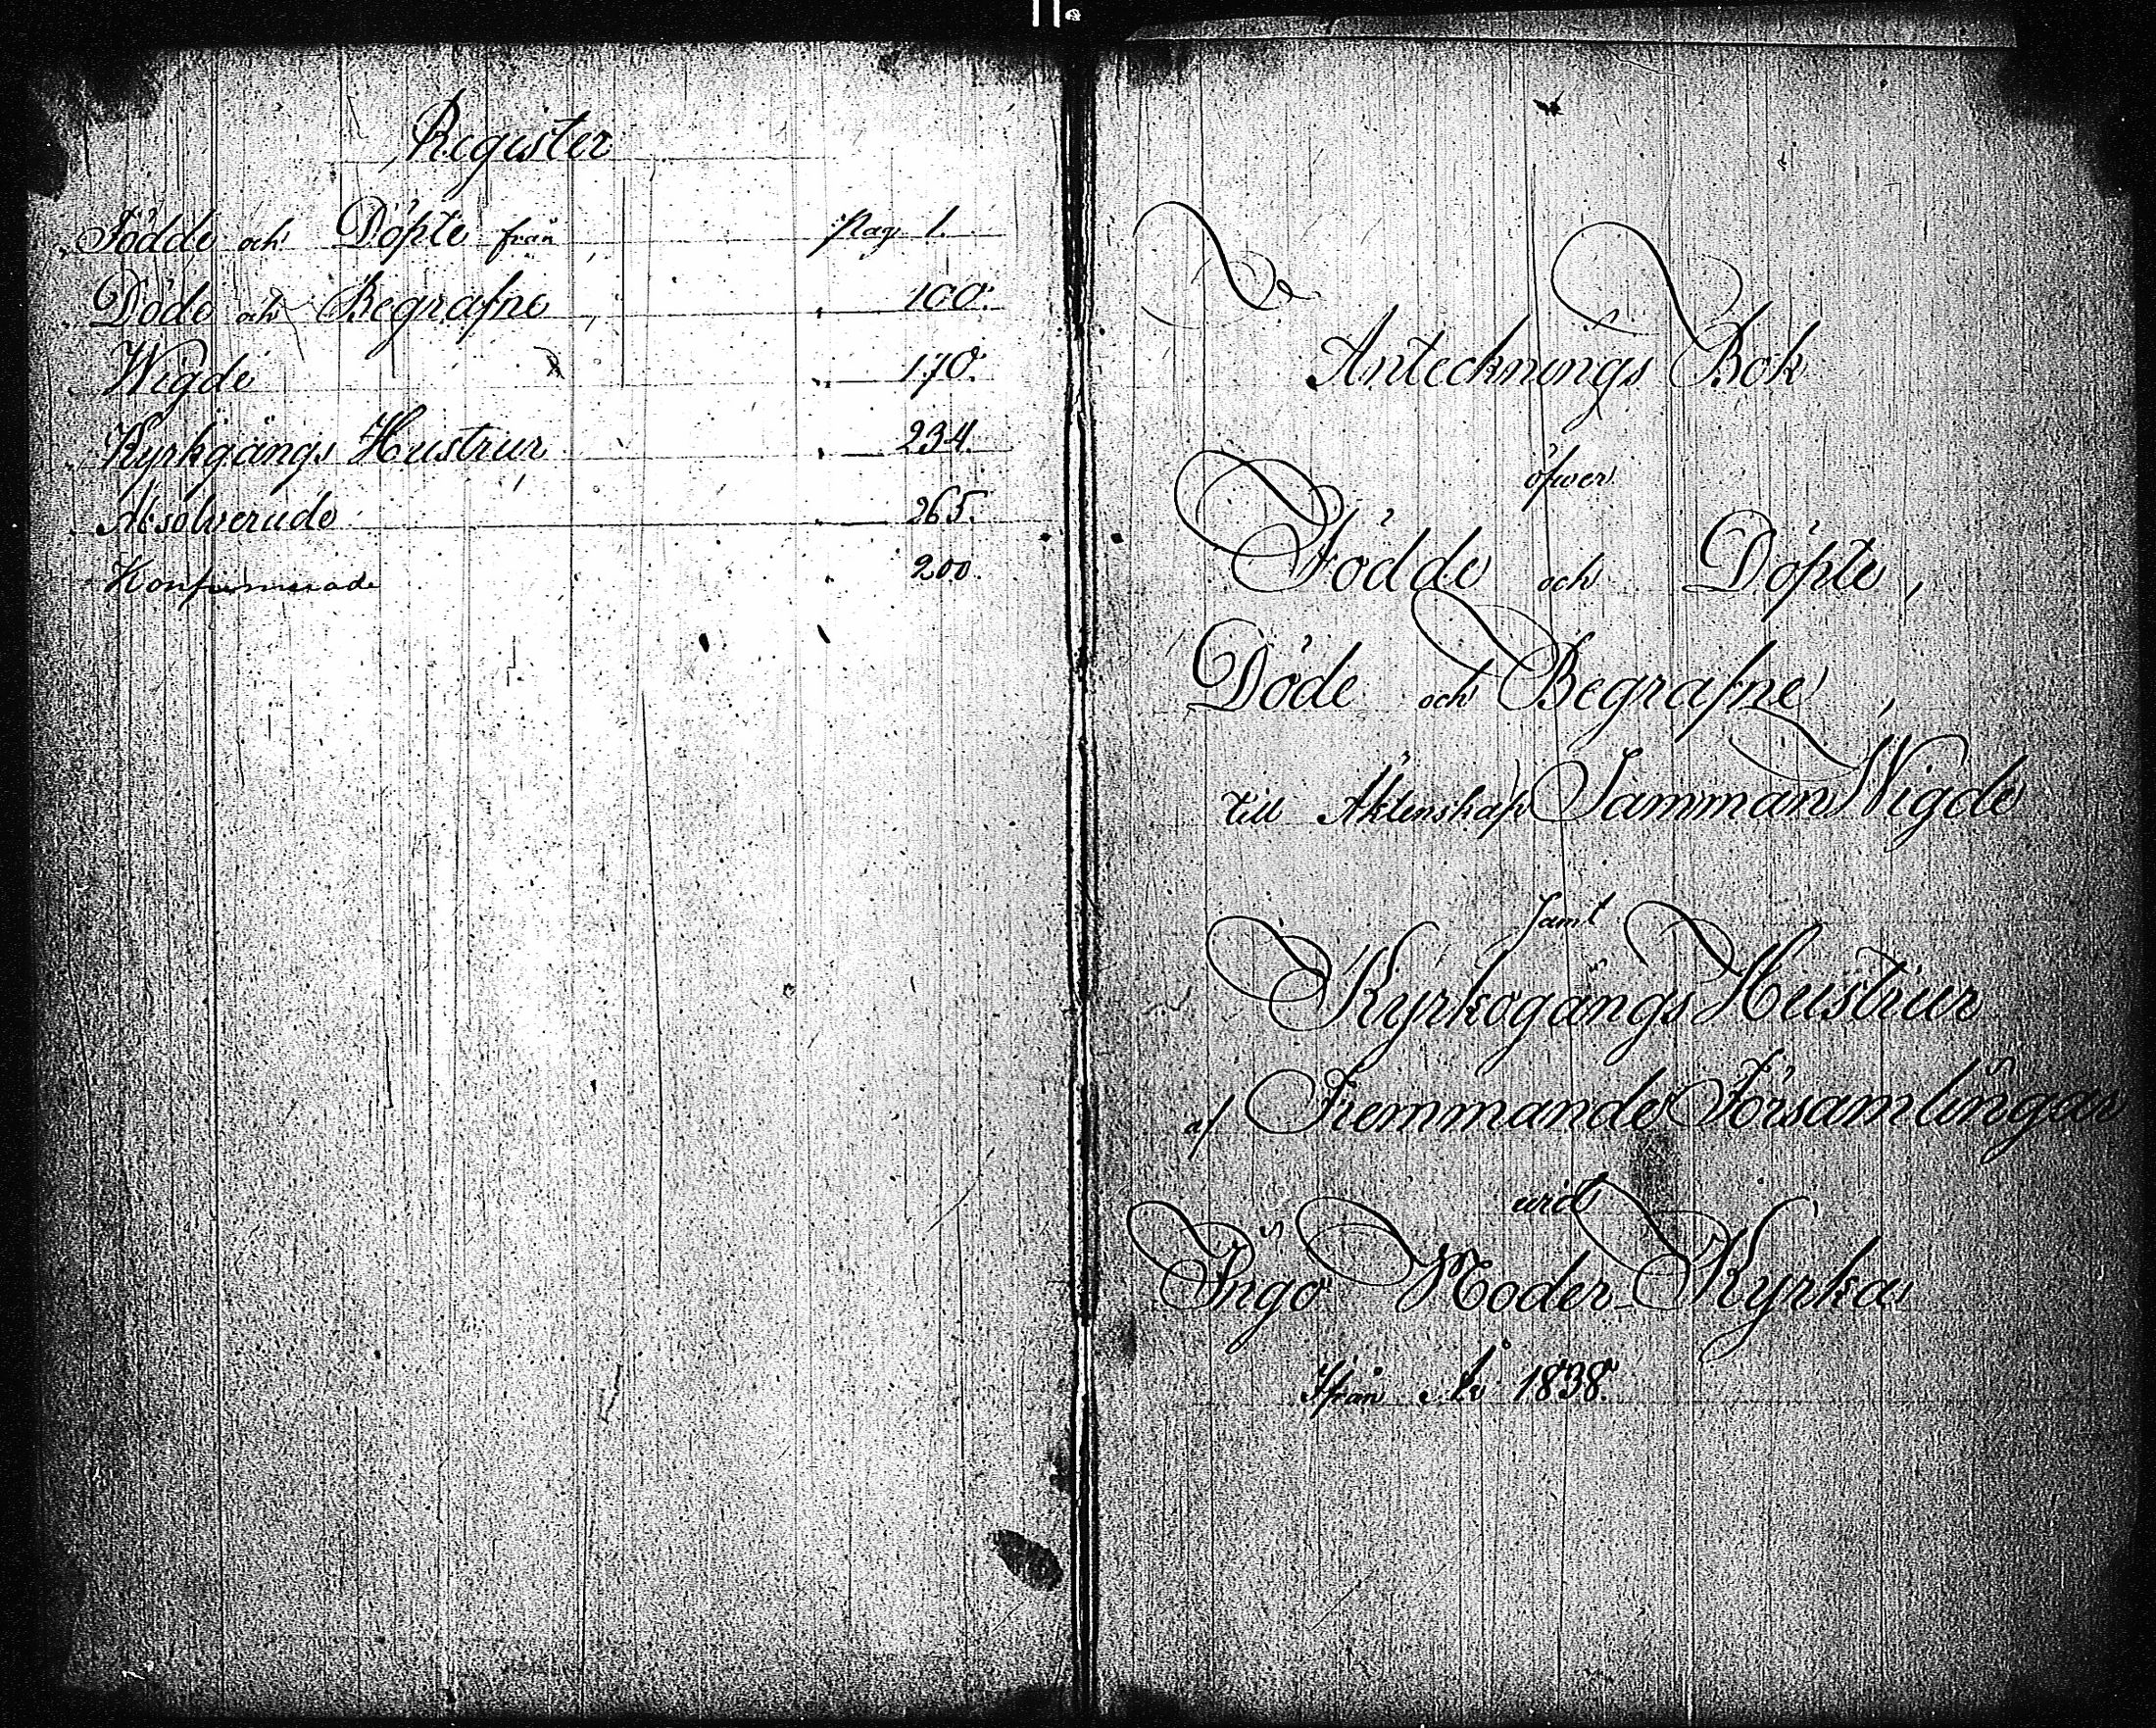 Register
Födde och Döpte från Pag. 1.
Döde och Begrafne 100.
Wigde 170.
Kyrkgångs Hustrur 234.
Absolverade 265.
Konfirmerade 200.
Antecknings Bok
öfwer
Födde och Döpte,
Döde och Begrafne,
till Äktenskap Samman Wigde
samt
Kyrkogångs Hustrur
af Fremmande Församlingar
wid
Ingo Moder Kyrka
Ifrån År 1838.